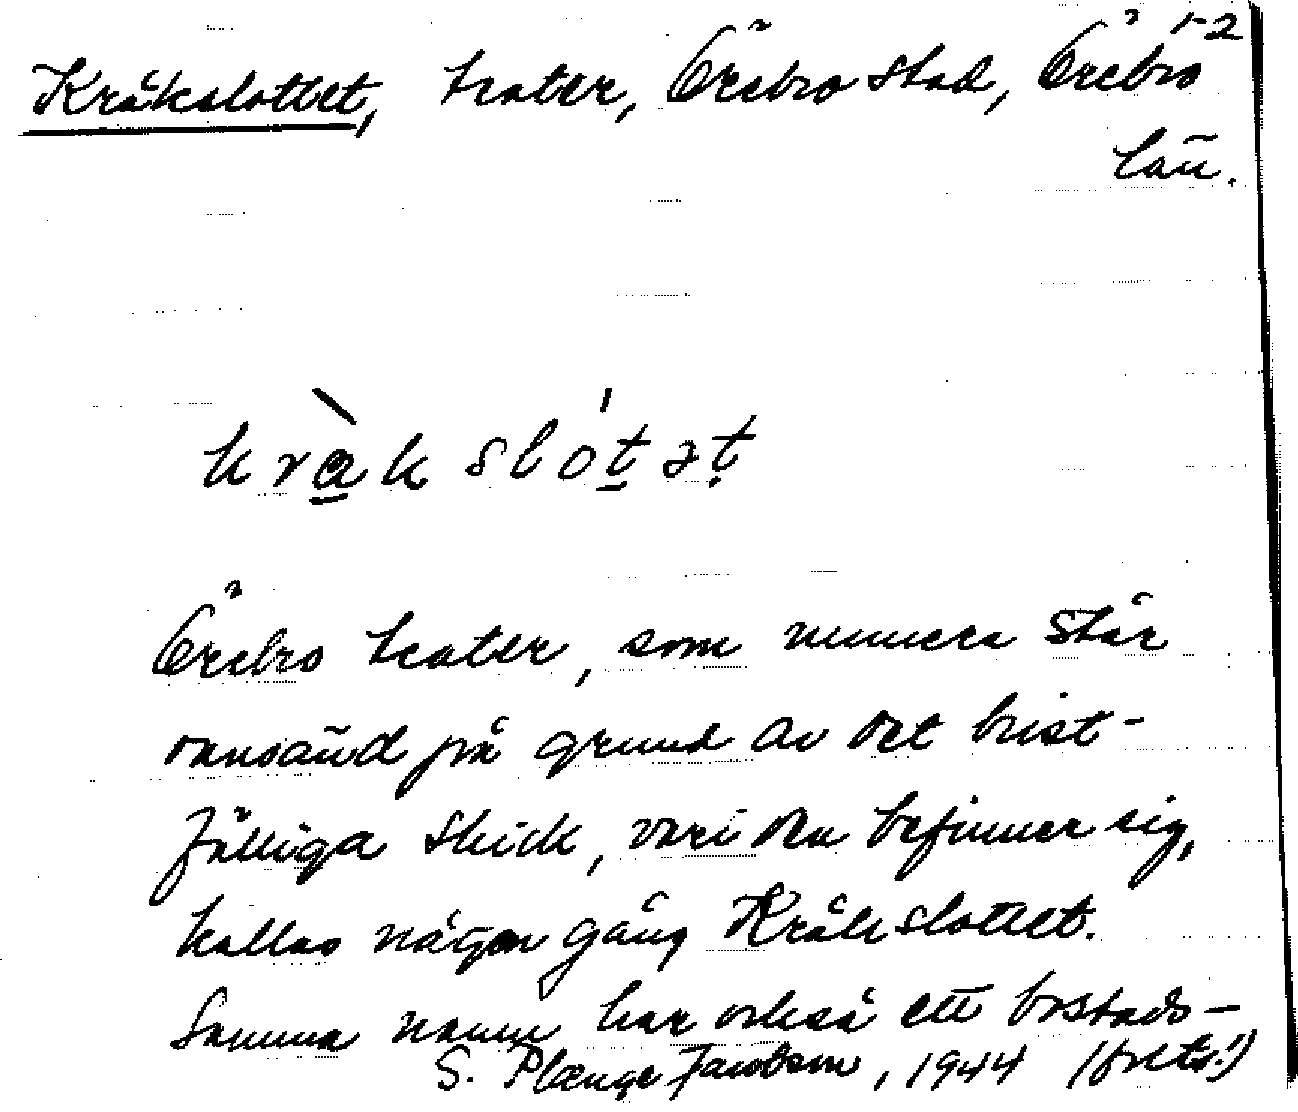 1-2
Kråkslottet, teater, Örebro stad, Örebro
län.
kràkslótət
Örebro teater, som numera står
oanvänd på grund av det brist-
fälliga skick, vari den befinner sig,
kallas någon gång Kråkslottet.
Samma namn har också ett bostads-
S. Plænge Jacobson, 1944 (forts.!)